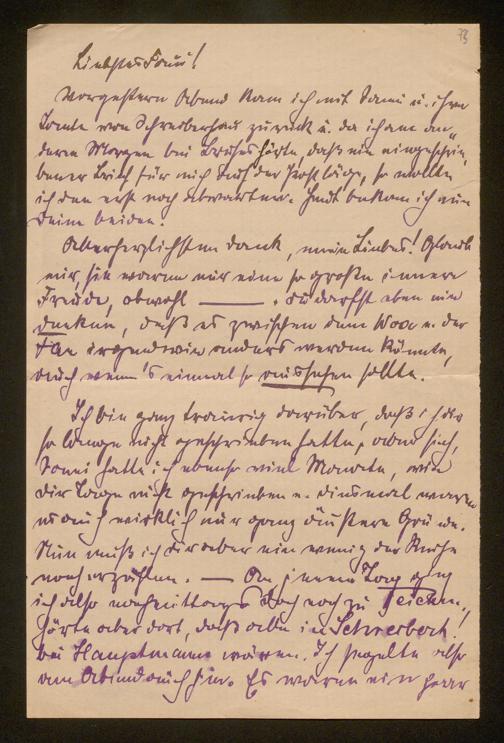 73
Liebstes Fami!
Vorgestern Abend kam ich mit Sami u. ihrer
Tante von Schreiberhau zurück u. da ich am an-
deren Morgen bei Bruhes hörte, daß ein eingeschrie-
bener Brief für mich auf der Post läge, so wollte
ich den erst noch abwarten. Heut bekam ich nun
Deine beiden.
Allerherzlichsten Dank, mein Liebes! Glaub
mir, sie waren mir eine so große innere
Freude, obwohl ——. Du darfst eben nie
denken, daß es zwischen dem Woo u. der
irgendwie anders werden könnte,
auch wenn's einmal so aussehen sollte.
Ich bin ganz traurig darüber, daß ich Dir
so lange nicht geschrieben hatte, aber sieh,
hatte ich ebenso viel Monate, wie
Dir Tage nicht geschrieben u. diesmal waren
es auch wirklich nur ganz äußere Gründe.
Nun muß ich Dir aber ein wenig der Reihe
nach erzählen. — An jenem Tag ging
ich also nachmittags doch noch zu
hörte aber dort, daß alle in Schreiberh.
bei Hauptmanns wären. Ich segelte also
am Abend auch hin. Es waren ein paar